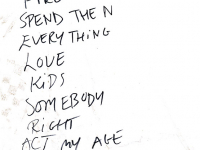 SPEND THE N
EVERYTHING
LOVE
KIDS
SOMEBODY
RIGHT
ACT MY AGE